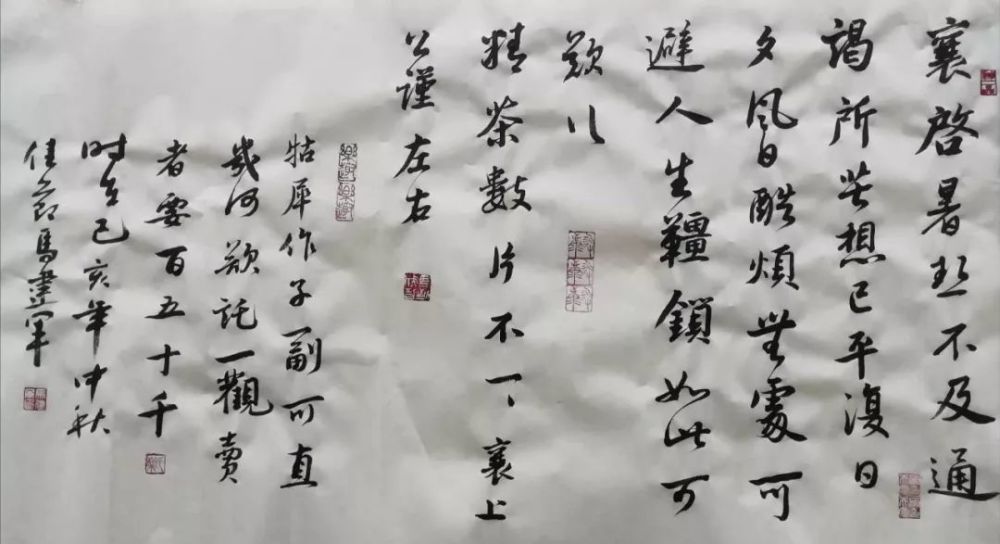 襄啓暑熱不及通
謁所苦想已平復日
夕風日酷煩無處可
避人生韁鎖如此可
歎く
精茶數片不一丶襄上
公謹左右
牯犀作子一副可直
幾何欲託一觀賣
者要百五十千
时在己亥年中秋
佳节馬建军